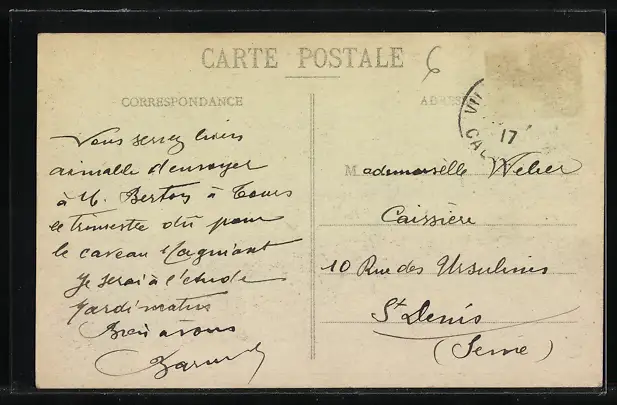 CARTE POSTALE
6
CORRESPONDANCE
ADRES
VIL
CAL
17
Vous serez bien
aimable d'envoyer
à M. Berton à Tours
le trimestre dû pour
le caveau Magniant
Je serai à l'étude
Mardi matin
Bien à vous
Mademoiselle Weber
Caissière
10 Rue des Ursulines
St Denis
(Seine)